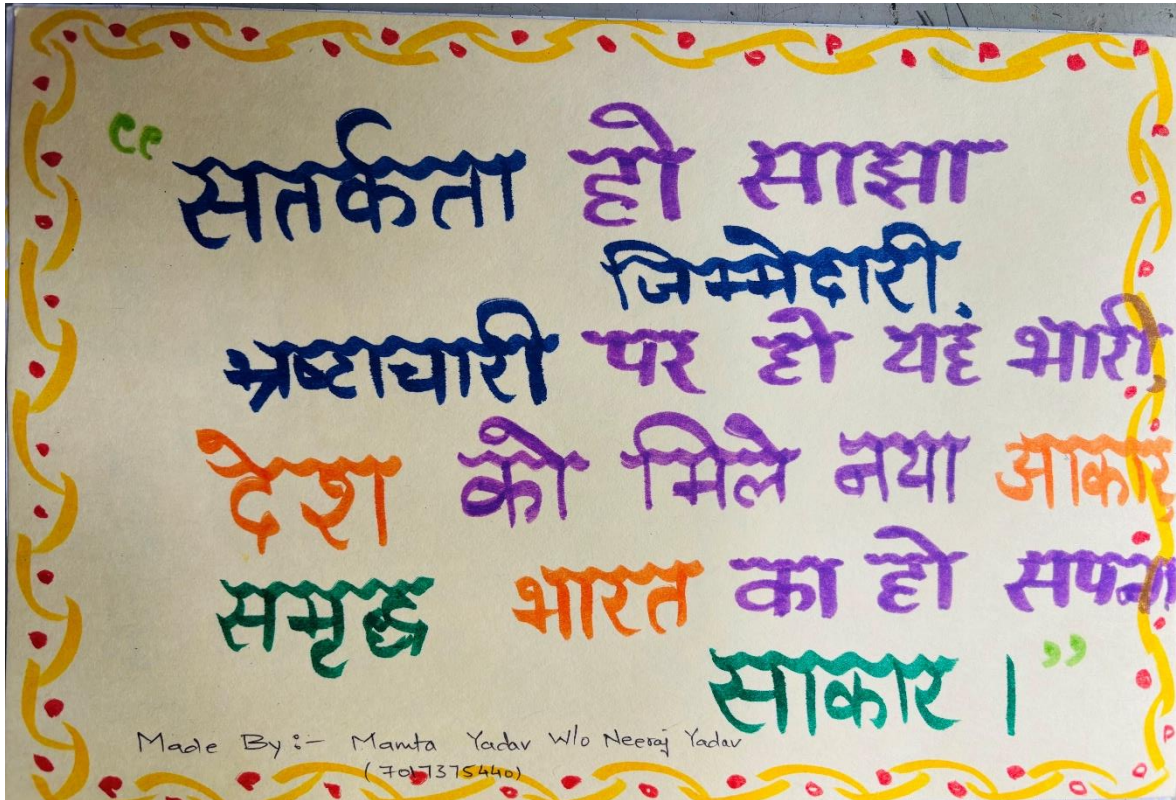 “ सतर्कता हो साझा
जिम्मेदारी,
भ्रष्टाचारी पर हो यह भारी,
देश को मिले नया आकार,
समृद्ध भारत का हो सपना
साकार । ”
Made By :- Mamta Yadav W/o Neeraj Yadav
(7017375440)